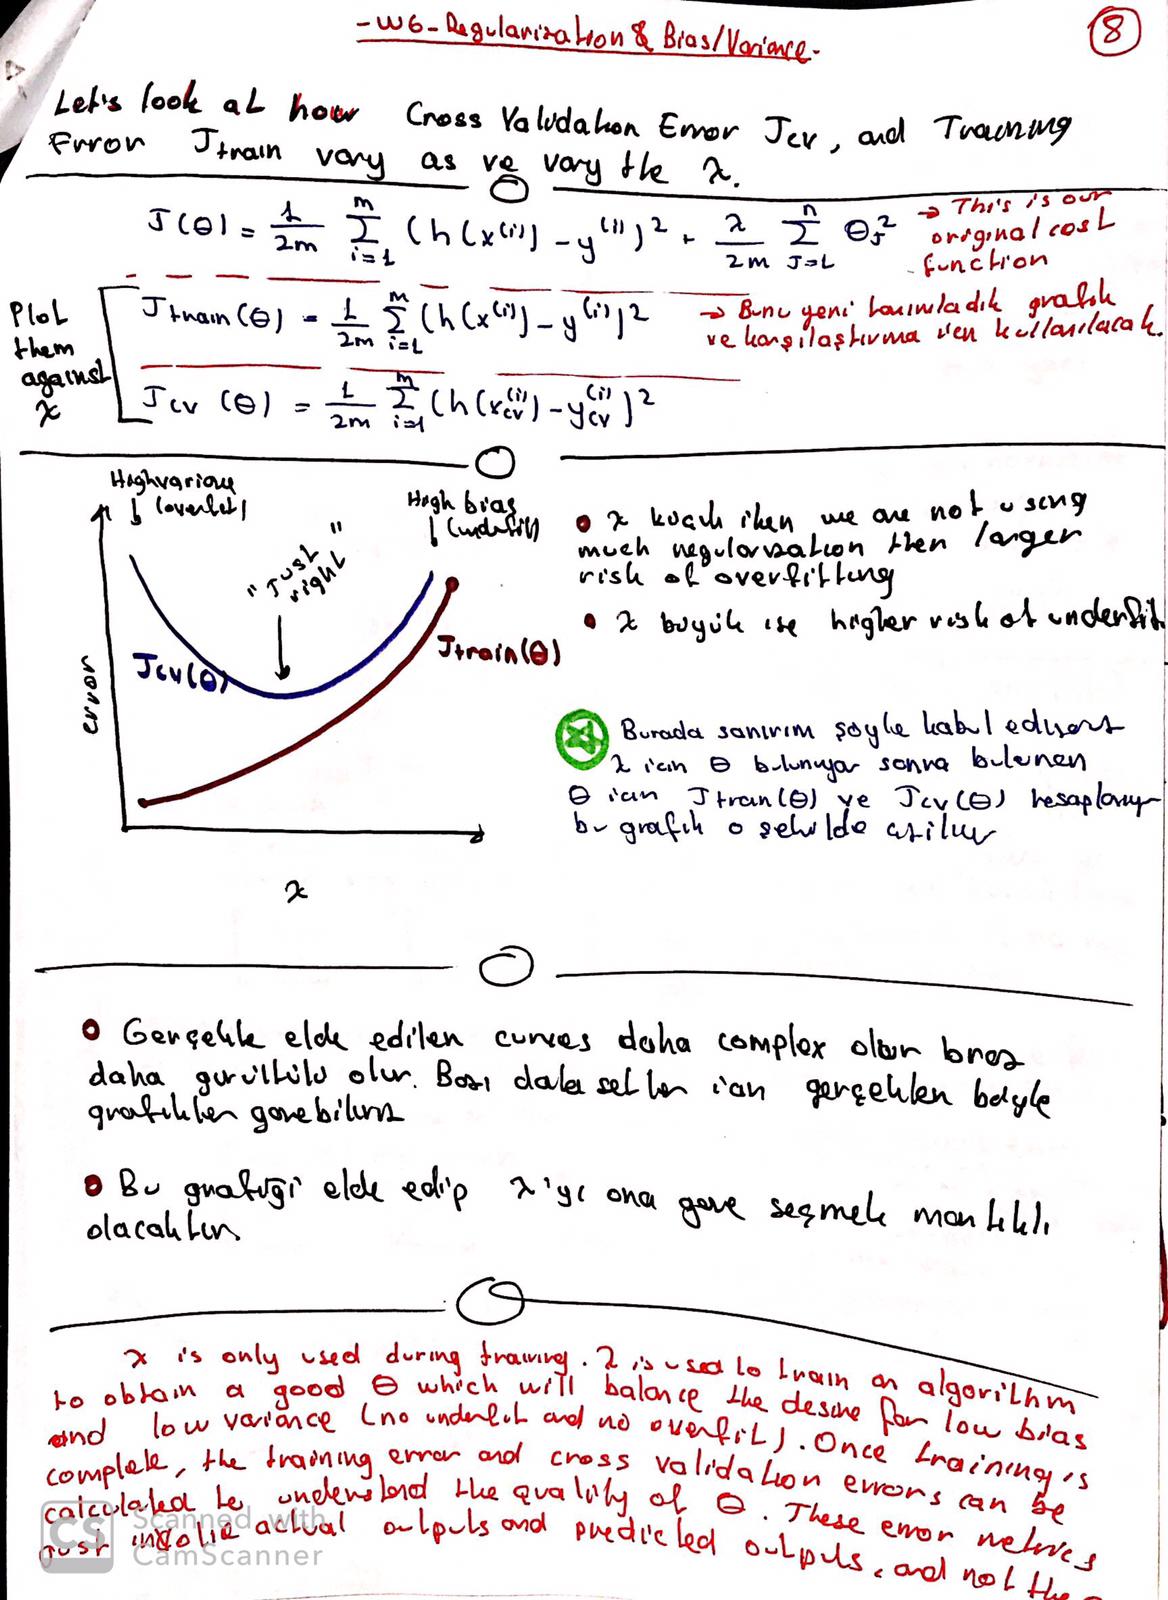 -W6-Regularization & Bias/Variance-
8
Let's look at how Cross Validation Error Jcv, and Training
Error Jtrain vary as we vary the λ.
J(θ) = 1/2m Σ_{i=1}^{m} (h(x^(i)) - y^(i))² + λ/2m Σ_{J=1}^{n} θ_J²
→ This is our
original cost
function
Plot
them
against
λ
Jtrain(θ) = 1/2m Σ_{i=1}^{m} (h(x^(i)) - y^(i))²
→ Bunu yeni tanımladık grafik
ve karşılaştırma için kullanılacak.
Jcv(θ) = 1/2m Σ_{i=1}^{m} (h(x_cv^(i)) - y_cv^(i))²
High variance
(overfit)
"Just
right"
High bias
(underfit)
Jcv(θ)
Jtrain(θ)
error
λ
• λ küçük iken we are not using
much regularization then larger
risk of overfitting
• λ büyük ise higher risk of underfit.
Burada sanırım şöyle kabul ediyoruz
λ için θ bulunuyor sonra bulunan
θ için Jtrain(θ) ve Jcv(θ) hesaplanıyor
bu grafik o şekilde çiziliyor
• Gerçekte elde edilen curves daha complex olur biraz
daha gürültülü olur. Bazı data setler için gerçekten böyle
grafikler görebiliriz
• Bu grafiği elde edip λ'yı ona göre seçmek mantıklı
olacaktır.
λ is only used during training. λ is used to train an algorithm
to obtain a good θ which will balance the desire for low bias
and low variance (no underfit and no overfit). Once training is
complete, the training error and cross validation errors can be
calculated to understand the quality of θ. These error metrics
just involve actual outputs and predicted outputs, and not the
CS Scanned with
CamScanner